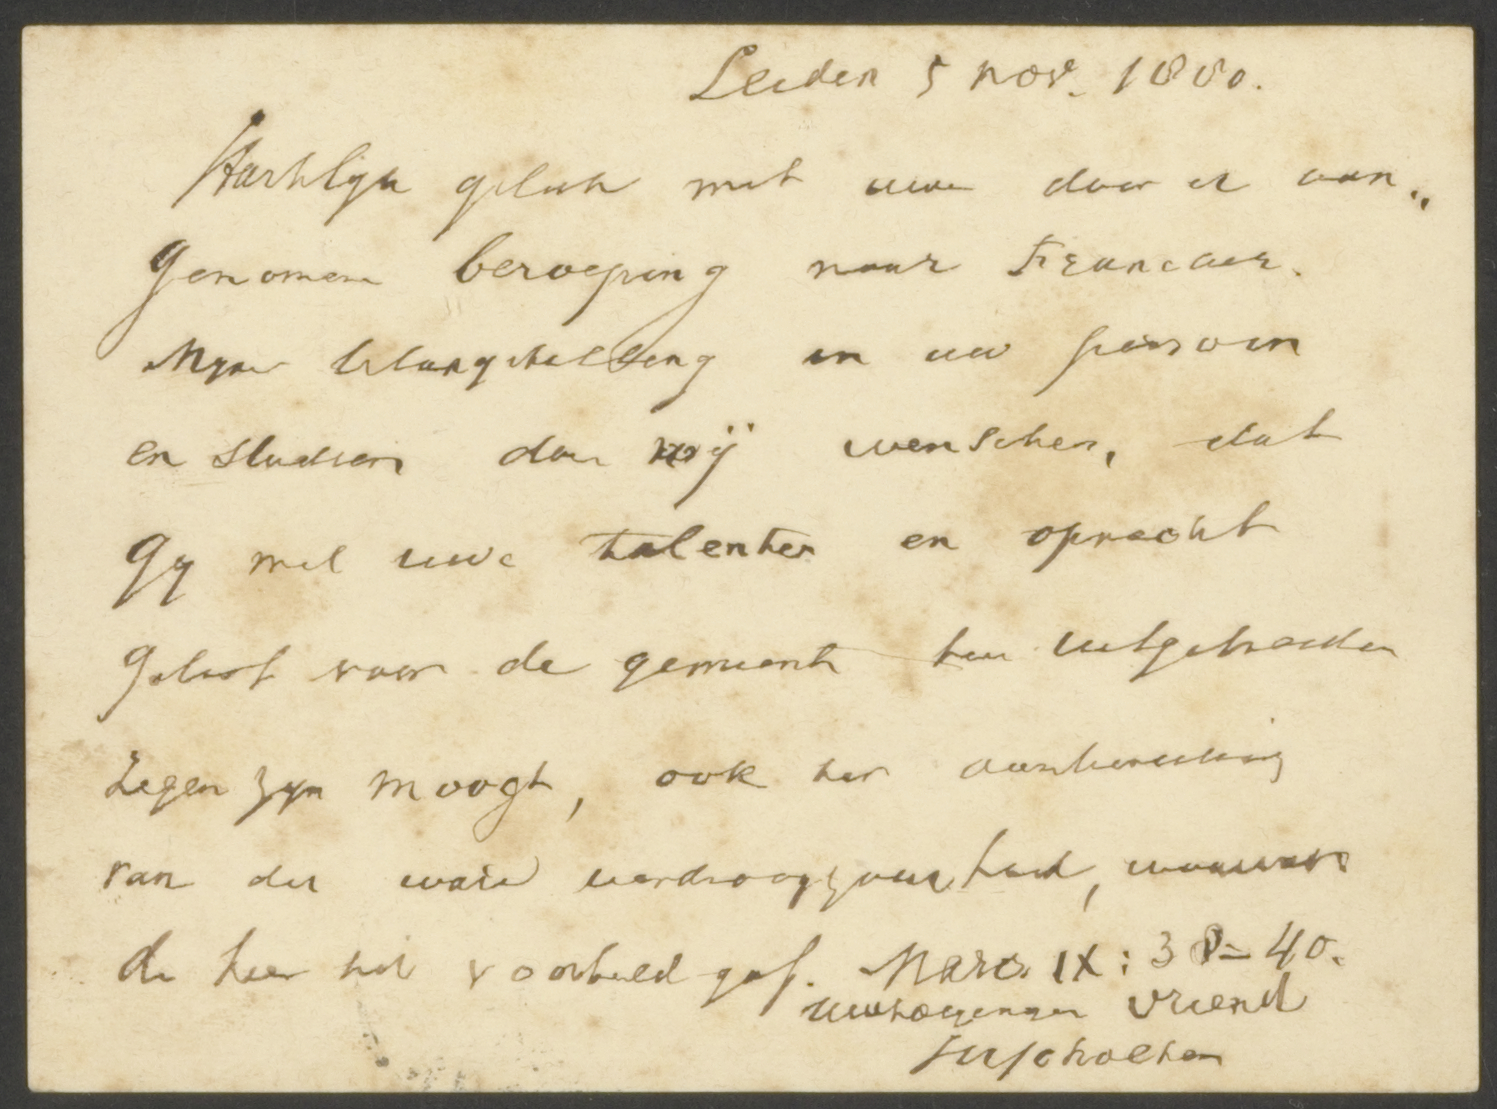 Leiden 5 nov. 1880.
Hartelijk geluk met uwe door u aan„
genomen beroeping naar Franeker.
Mijne belangstelling in uw persoon
en studien doen mij wenschen, dat
Gij met uwe talenten en oprecht
geloof voor de gemeente ten uitgebreiden
zegen zijn moogt, ook ter aanbeveling
van der ware verdraagzaamheid, waarvan
de heer het voorbeeld gaf. Marc. IX: 38-40.
uwtoegenegen vriend
JHScholten